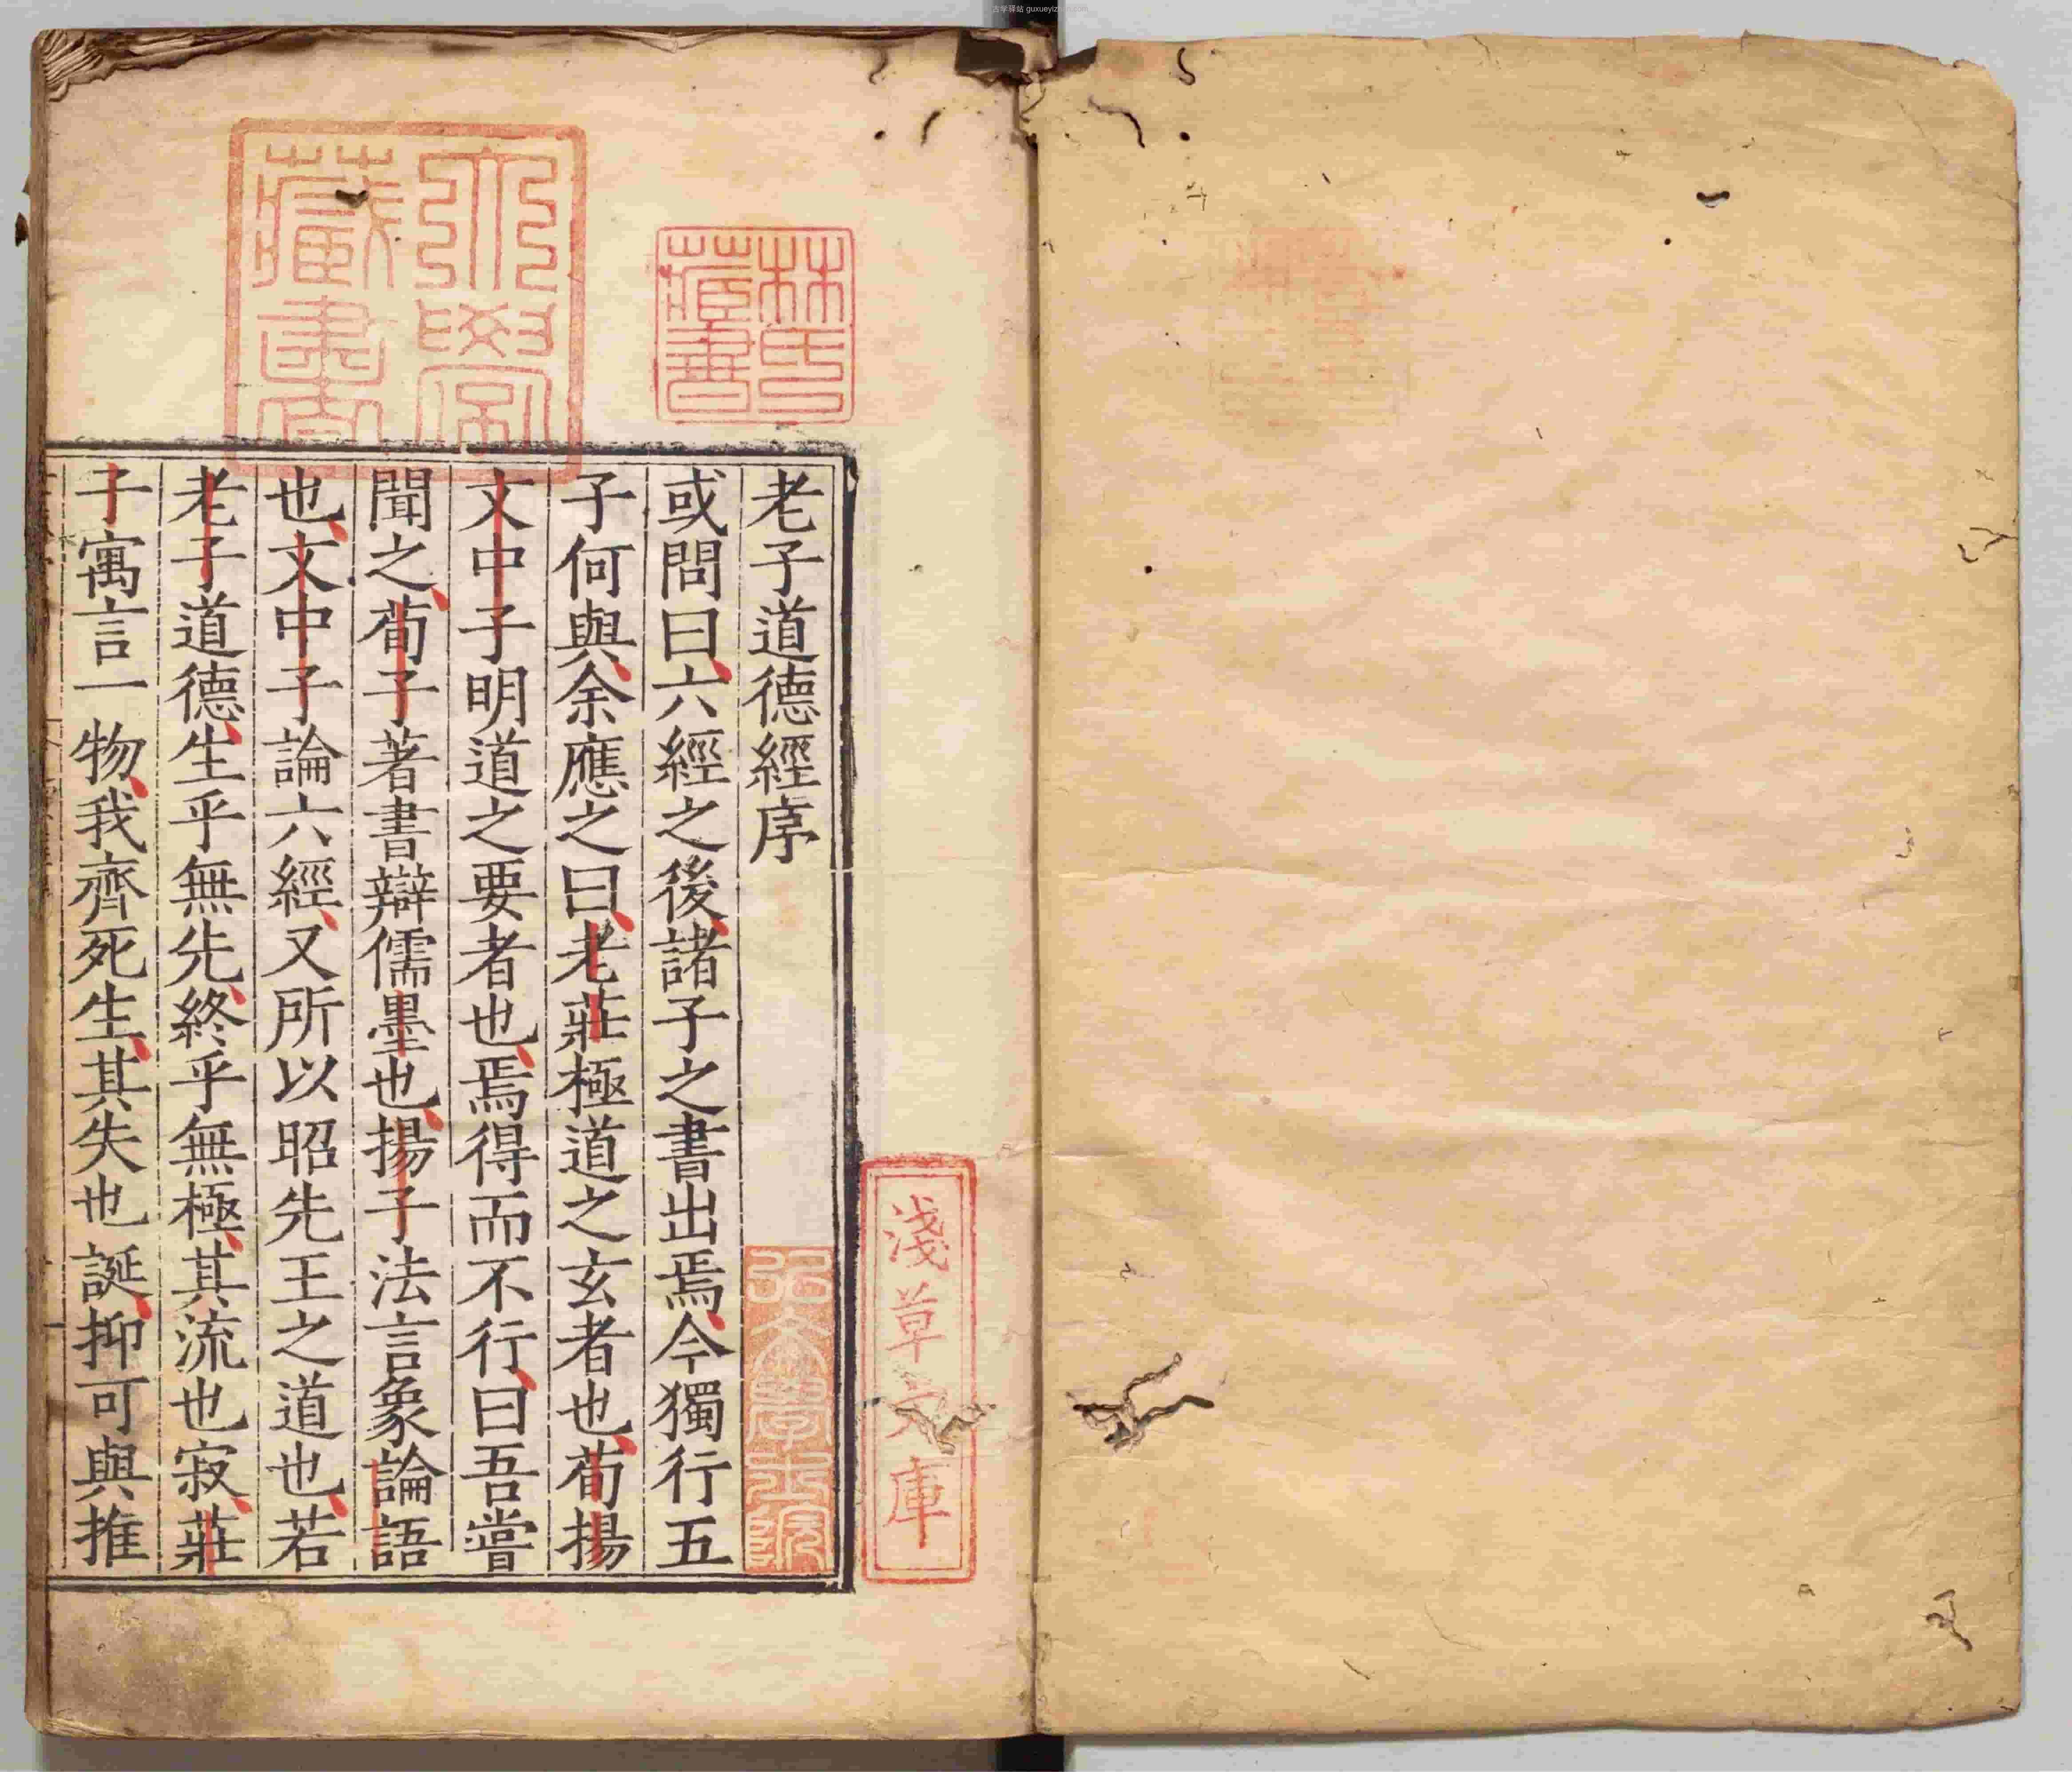 老子道德經序
或問曰六經之後諸子之書出焉今獨行五
子何與余應之曰老莊極道之玄者也荀揚
文中子明道之要者也焉得而不行曰吾嘗
聞之荀子著書辯儒墨也揚子法言象論語
也文中子論六經又所以昭先王之道也若
老子道德生乎無先終乎無極其流也寂莊
子寓言一物我齊死生其失也誕抑可與推
林氏藏書
淺草文庫
弘文學士院